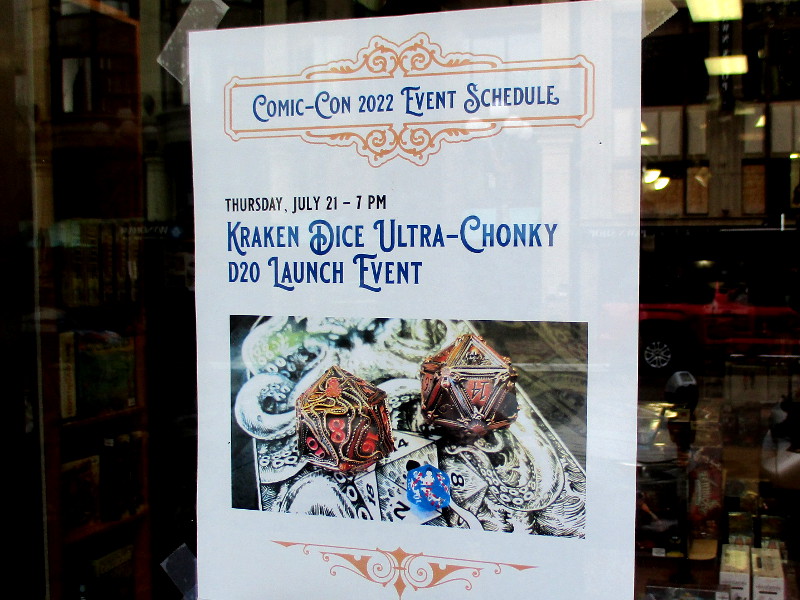 Comic-Con 2022 Event Schedule
Thursday, July 21 – 7 PM
Kraken Dice Ultra-Chonky
D20 Launch Event
14
8
4
8
18